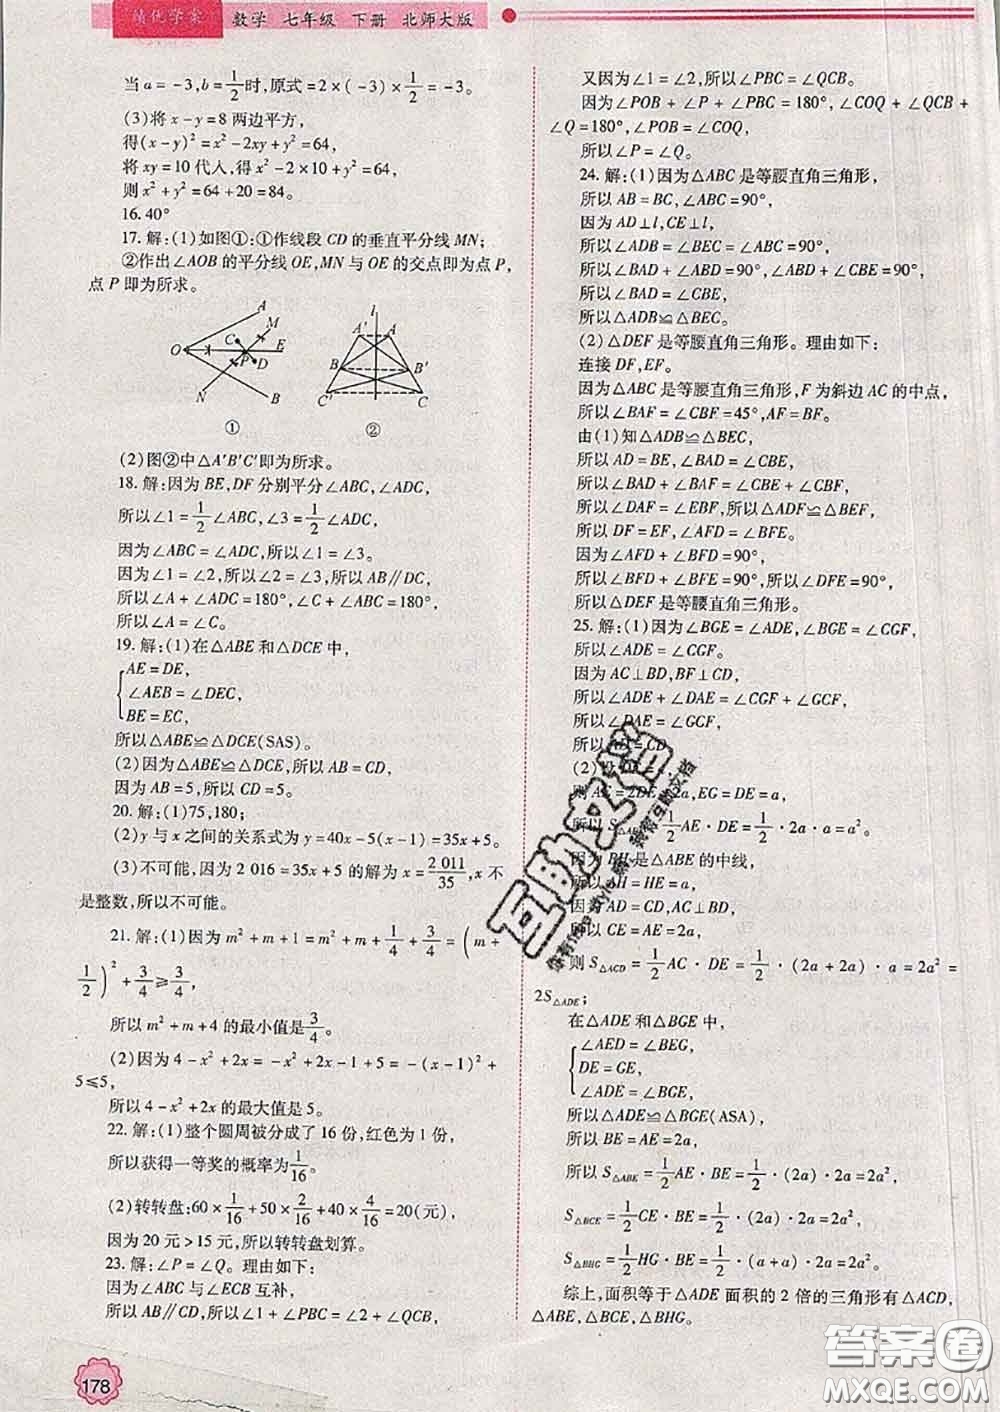 绩优学案 数学 七年级 下册 北师大版
当a=-3,b=1/2时,原式=2×(-3)×1/2=-3。
(3)将x-y=8两边平方,
得(x-y)²=x²-2xy+y²=64,
将xy=10代入,得x²-2×10+y²=64,
则x²+y²=64+20=84。
16.40°
17.解:(1)如图①:①作线段CD的垂直平分线MN;
②作出∠AOB的平分线OE,MN与OE的交点即为点P,
点P即为所求。
A M C O E P D N B
①
l A' A B B' C' C
②
(2)图②中△A'B'C'即为所求。
18.解:因为BE,DF分别平分∠ABC,∠ADC,
所以∠1=1/2∠ABC,∠3=1/2∠ADC,
因为∠ABC=∠ADC,所以∠1=∠3。
因为∠1=∠2,所以∠2=∠3,所以AB∥DC,
所以∠A+∠ADC=180°,∠C+∠ABC=180°,
所以∠A=∠C。
19.解:(1)在△ABE和△DCE中,
AE=DE,
∠AEB=∠DEC,
BE=EC,
所以△ABE≌△DCE(SAS)。
(2)因为△ABE≌△DCE,所以AB=CD,
因为AB=5,所以CD=5。
20.解:(1)75,180;
(2)y与x之间的关系式为y=40x-5(x-1)=35x+5。
(3)不可能,因为2 016=35x+5的解为x=2 011/35,x不
是整数,所以不可能。
21.解:(1)因为m²+m+1=m²+m+1/4+3/4=(m+
1/2)²+3/4≥3/4,
所以m²+m+4的最小值是3/4。
(2)因为4-x²+2x=-x²+2x-1+5=-(x-1)²+
5≤5,
所以4-x²+2x的最大值是5。
22.解:(1)整个圆周被分成了16份,红色为1份,
所以获得一等奖的概率为1/16。
(2)转转盘:60×1/16+50×2/16+40×4/16=20(元),
因为20元>15元,所以转转盘划算。
23.解:∠P=∠Q。理由如下:
因为∠ABC与∠ECB互补,
所以AB∥CD,所以∠1+∠PBC=∠2+∠QCB,
178
又因为∠1=∠2,所以∠PBC=∠QCB。
因为∠POB+∠P+∠PBC=180°,∠COQ+∠QCB+
∠Q=180°,∠POB=∠COQ,
所以∠P=∠Q。
24.解:(1)因为△ABC是等腰直角三角形,
所以AB=BC,∠ABC=90°,
因为AD⊥l,CE⊥l,
所以∠ADB=∠BEC=∠ABC=90°,
所以∠BAD+∠ABD=90°,∠ABD+∠CBE=90°,
所以∠BAD=∠CBE,
所以△ADB≌△BEC。
(2)△DEF是等腰直角三角形。理由如下:
连接DF,EF。
因为△ABC是等腰直角三角形,F为斜边AC的中点,
所以∠BAF=∠CBF=45°,AF=BF。
由(1)知△ADB≌△BEC,
所以AD=BE,∠BAD=∠CBE,
所以∠BAD+∠BAF=∠CBE+∠CBF,
所以∠DAF=∠EBF,所以△ADF≌△BEF,
所以DF=EF,∠AFD=∠BFE。
因为∠AFD+∠BFD=90°,
所以∠BFD+∠BFE=90°,所以∠DFE=90°,
所以△DEF是等腰直角三角形。
25.解:(1)因为∠BGE=∠ADE,∠BGE=∠CGF,
所以∠ADE=∠CGF。
因为AC⊥BD,BF⊥CD,
所以∠ADE+∠DAE=∠CGF+∠GCF,
所以∠DAE=∠GCF,
所以AD=CD。
(2)设DE=a,
则AE=2DE=2a,EG=DE=a,
所以S△ADE=1/2AE·DE=1/2·2a·a=a²。
因为BH是△ABE的中线,
所以AH=HE=a,
因为AD=CD,AC⊥BD,
所以CE=AE=2a,
则S△ACD=1/2AC·DE=1/2·(2a+2a)·a=2a²=
2S△ADE;
在△ADE和△BGE中,
∠AED=∠BEG,
DE=GE,
∠ADE=∠BGE,
所以△ADE≌△BGE(ASA),
所以BE=AE=2a,
所以S△ABE=1/2AE·BE=1/2·(2a)·2a=2a²,
S△BCE=1/2CE·BE=1/2·(2a)·2a=2a²,
S△BHG=1/2HG·BE=1/2·(a+a)·2a=2a²。
综上,面积等于△ADE面积的2倍的三角形有△ACD,
△ABE,△BCE,△BHG。
互助文档
答案圈
MXQE.COM